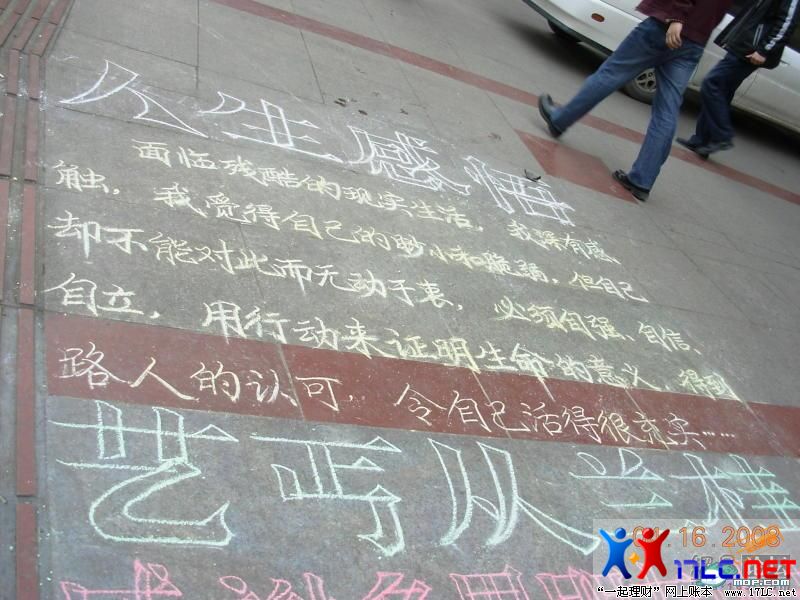 人生感悟
面临残酷的现实生活，我深有感
触，我觉得自己的渺小和脆弱，但自己
却不能对此而无动于衷，必须自强、自信、
自立，用行动来证明生命的意义，得到
路人的认可，令自己活得很充实……
艺丐从兰桂
01.16.2008
17LC.NET
mop.com
“一起理财”网上账本 www.17LC.net